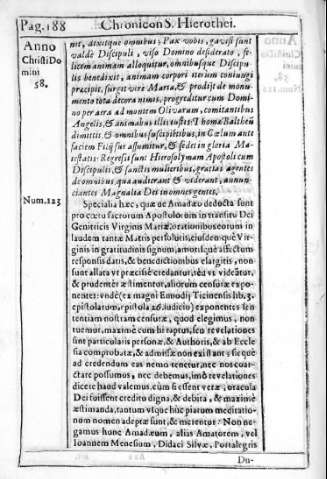 Pag. 188 Chronicon S. Hierothei.
Anno
Christi Do
mini
58.
nit, dixitque omnibus; Pax vobis, gavisi sunt
valdè Discipuli, viso Domino desiderato, fe-
licem animam alloquitur, omnibusque Discipu
lis benedixit, animam corpori iterum coniungi
præcipit, surgit viva Maria, & prodijt de monu
mento tota decora nimis, progreditur cum Domi
no per aera ad montem Olivarum, comitantibus
Angelis, & animabus illustrus: Thomæ Baltheũ
dimittit & omnibus suspicientibus, in Cælum ante
faciem Filij sui assumitur, & sedet in gloria Ma-
iestatis: Regressi sunt Hierosolymam Apostoli cum
Discipulis, & sanctis mulieribus, gratias agentes
de omnibus, quæ audierant & viderant, annun
ciantes Magnalia Dei in omnes gentes.
Num. 123
Specialia hæc, quæ ex Amadæo deducta sunt
pro cœtu sacrorum Apostolorum in transitu Dei
Genitricis Virginis Mariæ, orationibus eorum in
laudem tantæ Matris persolutis, eiusdemquè Vir-
ginis in gratitudinis signum, amorisque affectum
responsis datis, & benedictionibus elargitis, non
sunt allata vt præcisè credantur, sed vt videãtur,
& prudenter æstimentur, aliorum censuræ expo-
nentes: vndè (ex magni Ennodij Ticinensis lib. 3.
epistolarum, epistola 26. iudicio) exponentes sen
tentiam nostram censuræ, quod elegimus, non
tuemur, maximè cum hi raptus, seu revelationes
sint particularis personæ, & Authoris, & ab Eccle
sia comprobatæ, & admissæ non existant; sic què
ad credendum eas nemo tenetur, nec nos coar-
ctare possumus, nec debemus, imò revelationes
dicere haud valemus, cùm si essent veræ, oracula
Dei fuissent credito digna, & debita, & maximè
æstimanda, tantum vsque huc piarum meditatio-
num nomen adeptæ sunt, & merentur: Non ne-
gamus hunc Amadæum, alias Amatorem, vel
Ioannem Menesium, Didaci Silvæ, Portalegris
Du-